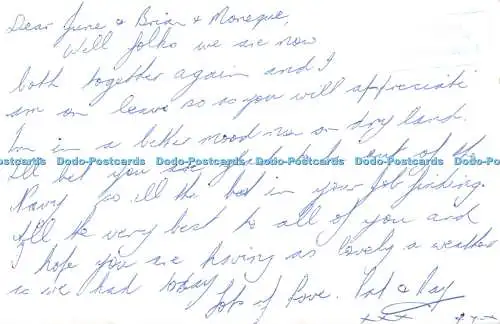 Dear June & Brian & Moneque,
Well folks we are now
both together again and I
am on leave so as you will appreciate
I'm in a better mood now on dry land.
Dodo-Postcards Dodo-Postcards Dodo-Postcards Dodo-Postcards Dodo-Postcards Dodo-Postcards
I'll bet you are glad to be out of the
Navy so all the best in your Job finding.
All the very best to all of you and
I hope you are having as lovely a weather
as we had today
Lots of Love. Pat & Ray
xxx